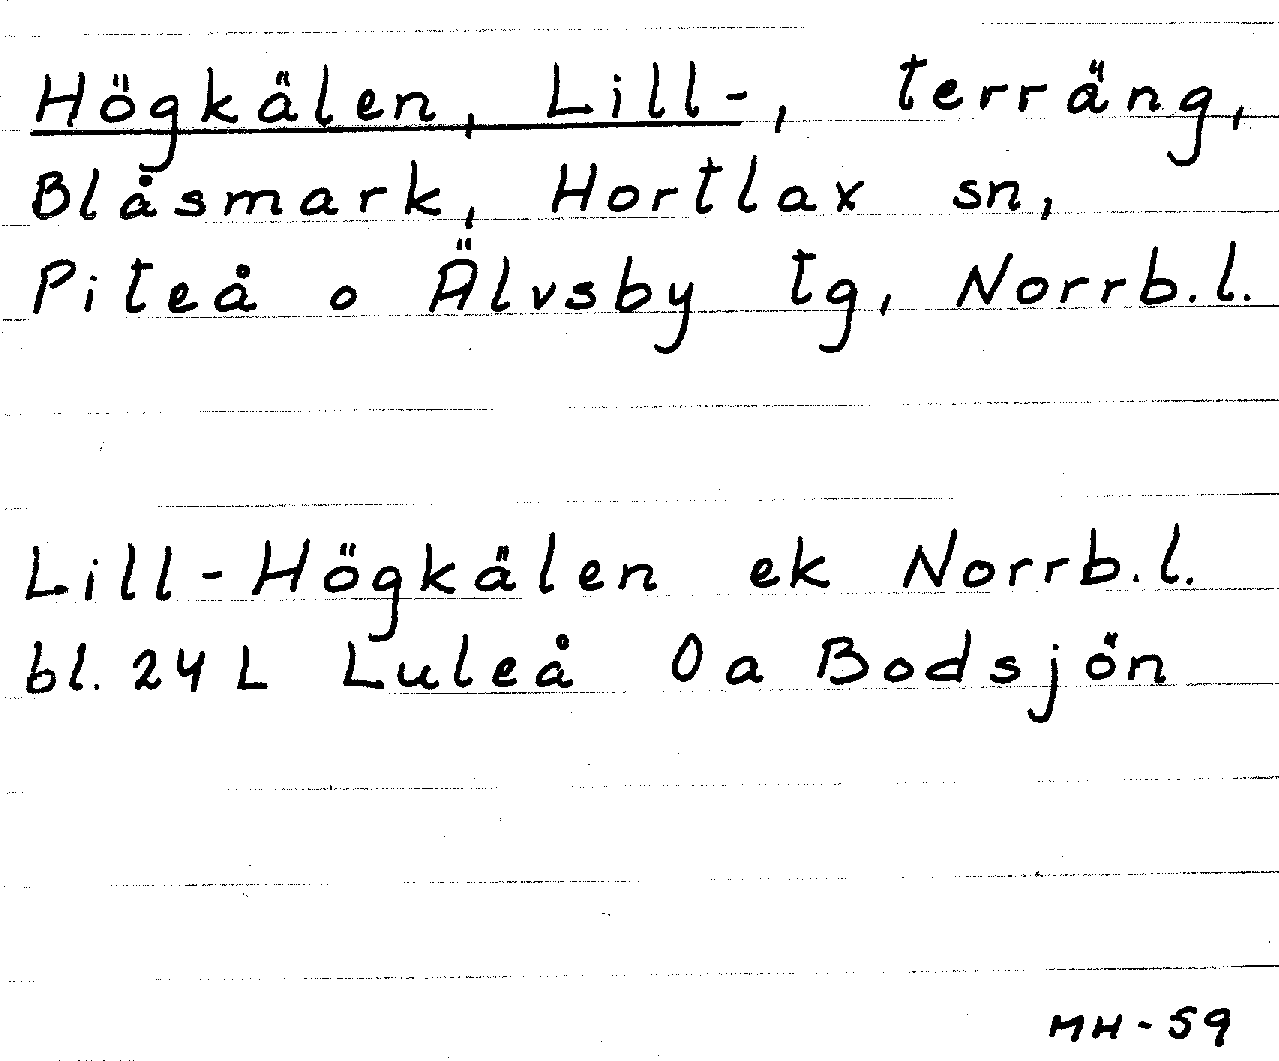 Högkälen, Lill-, terräng,
Blåsmark, Hortlax sn,
Piteå o Älvsby tg, Norrb.l.
Lill-Högkälen ek Norrb.l.
bl. 24 L Luleå 0a Bodsjön
MH-59